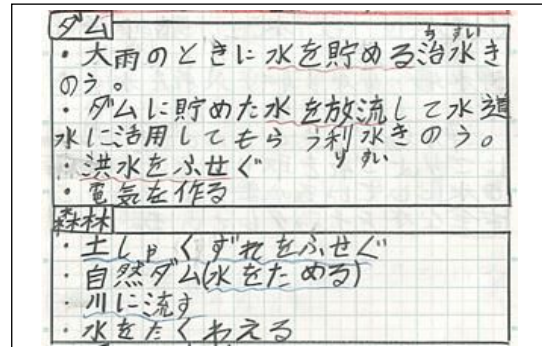 ダム
・大雨のときに水を貯める治水き
ちすい
のう。
・ダムに貯めた水を放流して水道
水に活用してもらう利水きのう。
りすい
・洪水をふせぐ
・電気を作る
森林
・土しゃくずれをふせぐ
・自然ダム(水をためる)
・川に流す
・水をたくわえる